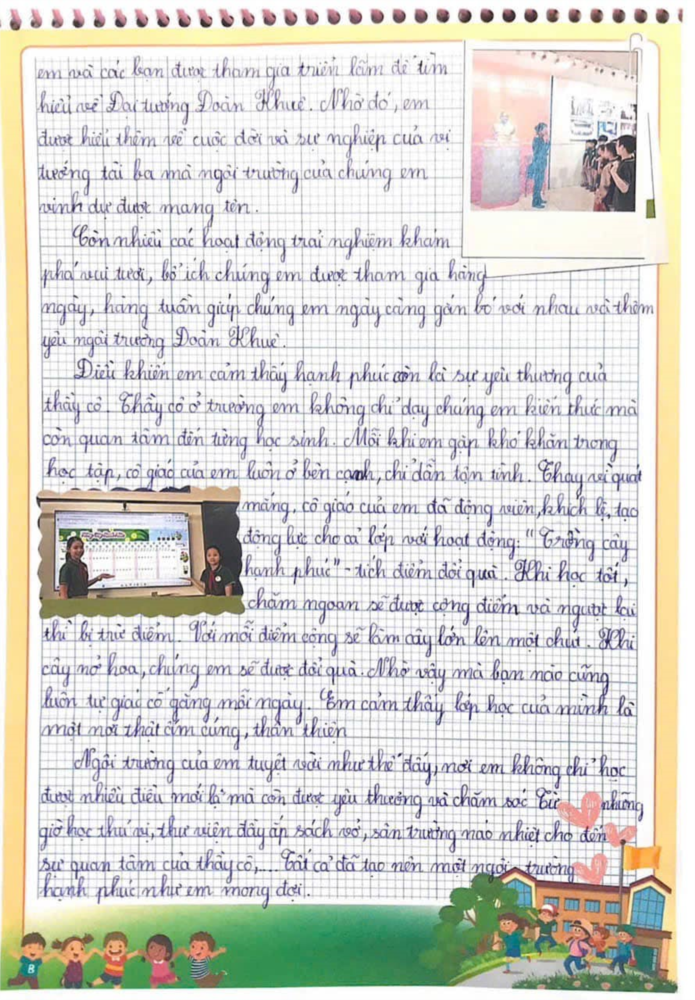 em và các bạn được tham gia triển lãm để tìm
hiểu về Đại tướng Đoàn Khuê. Nhờ đó, em
được hiểu thêm về cuộc đời và sự nghiệp của vị
tướng tài ba mà ngôi trường của chúng em
vinh dự được mang tên.
Còn nhiều các hoạt động trải nghiệm khám
phá vui tươi, bổ ích chúng em được tham gia hàng
ngày, hàng tuần giúp chúng em ngày càng gắn bó với nhau và thêm
yêu ngôi trường Đoàn Khuê.
Điều khiến em cảm thấy hạnh phúc còn là sự yêu thương của
thầy cô. Thầy cô ở trường em không chỉ dạy chúng em kiến thức mà
còn quan tâm đến từng học sinh. Mỗi khi em gặp khó khăn trong
học tập, cô giáo của em luôn ở bên cạnh, chỉ dẫn tận tình. Thay vì quát
mắng, cô giáo của em đã động viên, khích lệ, tạo
động lực cho cả lớp với hoạt động: "Trồng cây
hạnh phúc" - tích điểm đổi quà. Khi học tốt,
chăm ngoan sẽ được cộng điểm và ngược lại
thì bị trừ điểm. Với mỗi điểm cộng sẽ làm cây lớn lên một chút. Khi
cây nở hoa, chúng em sẽ được đổi quà. Nhờ vậy mà bạn nào cũng
luôn tự giác cố gắng mỗi ngày. Em cảm thấy lớp học của mình là
một nơi thật ấm cúng, thân thiện
Ngôi trường của em tuyệt vời như thế đấy, nơi em không chỉ học
được nhiều điều mới lạ mà còn được yêu thương và chăm sóc. Từ những
giờ học thú vị, thư viện đầy ắp sách vở, sân trường náo nhiệt cho đến
sự quan tâm của thầy cô,... Tất cả đã tạo nên một ngôi trường
hạnh phúc như em mong đợi.